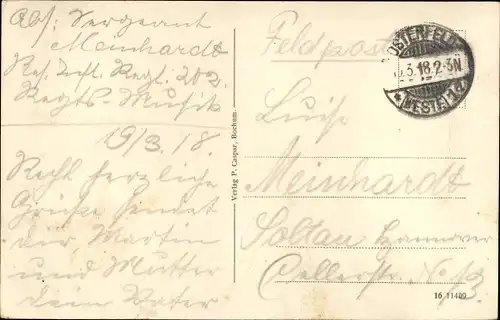 Abs: Sergeant
Meinhardt
Res. Inft. Regt. 202.
Regts-Musik
19/3.18.
Recht herzliche
Grüße sendet
dir, Martin
und Mutter
dein Vater
Verlag P. Caspar, Bochum.
Feldpost
OSTERFELD
3.18.2-3N
* (WESTF) 1
Luis
Meinhardt
Soltau Hannover
Cellerstr. No 13.
16 11409